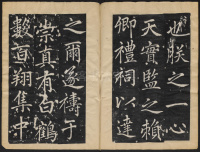 逝朕之一心
天實監之賴
卿禮祠以達
之爾遂禱于
崇真有白鶴
數百翔集中